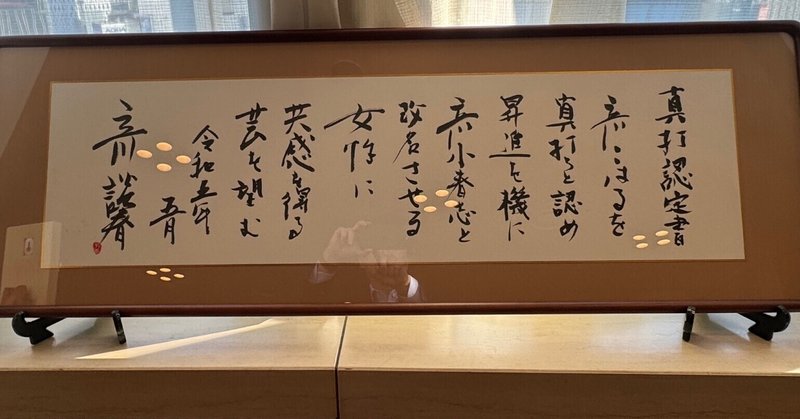 真打認定書
立川こはるを
真打ちと認め
昇進を機に
立川小春志と
改名させる
女性に
共感を得る
芸を望む
令和五年
五月
立川談春